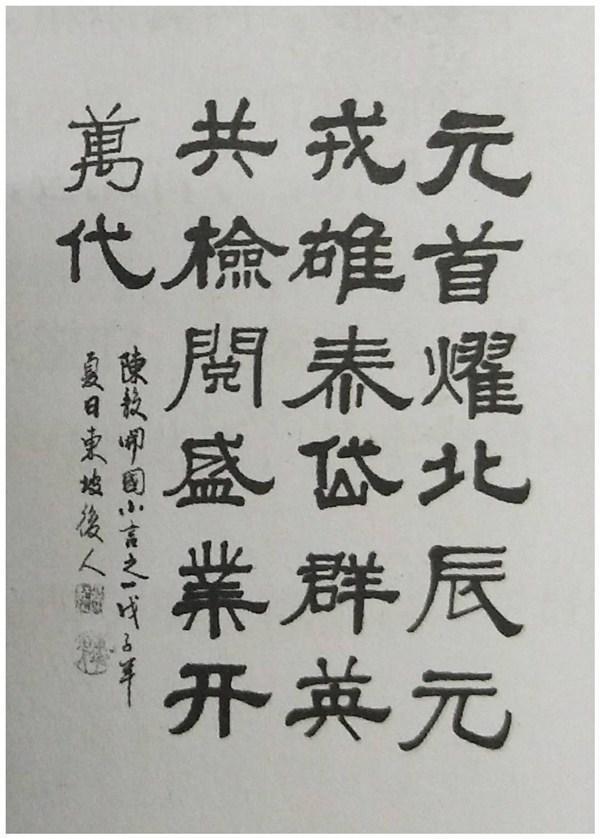 元首耀北辰元
戎雄泰岱群英
共檢閱盛業开
萬代
陳毅開國小言之一戊子年
夏日東坡後人